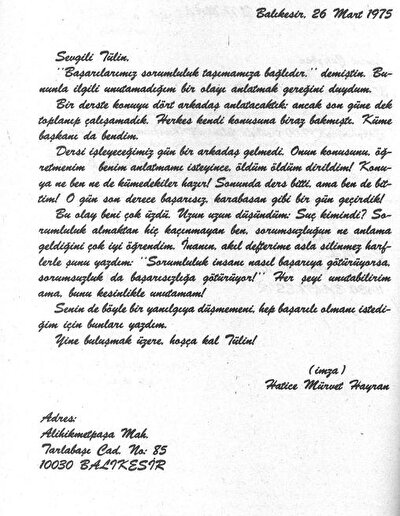 Balıkesir, 26 Mart 1975
Sevgili Tülin,
"Başarılarımız sorumluluk taşımamıza bağlıdır." demiştin. Bu-
nunla ilgili unutamadığım bir olayı anlatmak gereğini duydum.
Bir derste konuyu dört arkadaş anlatacaktık; ancak son güne dek
toplanıp çalışamadık. Herkes kendi konusuna biraz bakmıştı. Küme
başkanı da bendim.
Dersi işleyeceğimiz gün bir arkadaş gelmedi. Onun konusunu, öğ-
retmenim benim anlatmamı isteyince, öldüm öldüm dirildim! Konu-
ya ne ben ne de kümedekiler hazır! Sonunda ders bitti, ama ben de bit-
tim! O gün son derece başarısız, karabasan gibi bir gün geçirdik!
Bu olay beni çok üzdü. Uzun uzun düşündüm: Suç kimindi? So-
rumluluk almaktan hiç kaçınmayan ben, sorumsuzluğun ne anlama
geldiğini çok iyi öğrendim. İnanın, akıl defterime asla silinmez harf-
lerle şunu yazdım: "Sorumluluk insanı nasıl başarıya götürüyorsa,
sorumsuzluk da başarısızlığa götürüyor!" Her şeyi unutabilirim
ama, bunu kesinlikle unutamam!
Senin de böyle bir yanılgıya düşmemeni, hep başarılı olmanı istedi-
ğim için bunları yazdım.
Yine buluşmak üzere, hoşça kal Tülin!
(imza)
Hatice Mürvet Hayran
Adres:
Alihikmetpaşa Mah.
Tarlabaşı Cad. No: 85
10030 BALIKESİR